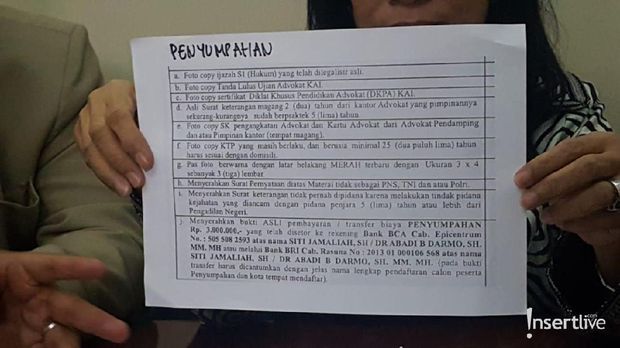 PENYUMPAHAN
a. Foto copy ijazah S1 (Hukum) yang telah dilegalisir asli.
b. Foto copy Tanda Lulus Ujian Advokat KAI.
c. Foto copy sertifikat Diklat Khusus Pendidikan Advokat (DKPA) KAI.
d. Asli Surat keterangan magang 2 (dua) tahun dari kantor Advokat yang pimpinannya
sekurang-kurangnya sudah berpraktek 5 (lima) tahun.
e. Foto copy SK pengangkatan Advokat dan Kartu Advokat dari Advokat Pendamping
dan atau Pimpinan kantor (tempat magang).
f. Foto copy KTP yang masih berlaku, dan berusia minimal 25 (dua puluh lima) tahun
harus sesuai dengan domisili.
g. Pas foto berwarna dengan latar belakang MERAH terbaru dengan Ukuran 3 x 4
sebanyak 3 (tiga) lembar.
h. Menyerahkan Surat Pernyataan diatas Materai tidak sebagai PNS, TNI dan atau Polri.
i. Menyerahkan Surat keterangan tidak pernah dipidana karena melakukan tindak pidana
kejahatan yang diancam dengan pidana penjara 5 (lima) tahun atau lebih dari
Pengadilan Negeri.
j. Menyerahkan bukti ASLI pembayaran / transfer biaya PENYUMPAHAN
Rp. 3.000.000,- yang telah disetor ke rekening Bank BCA Cab. Epicentrum
No. : 505 508 2593 atas nama SITI JAMALIAH, SH / DR ABADI B DARMO, SH,
MM. MH atau melalui Bank BRI Cab. Rasuna No : 2013 01 000106 568 atas nama
SITI JAMALIAH, SH / DR ABADI B DARMO, SH, MM. MH. (pada bukti
transfer harus dicantumkan dengan jelas nama lengkap pendaftaran calon peserta
Penyumpahan dan kota tempat mendaftar).
Insertlive.com